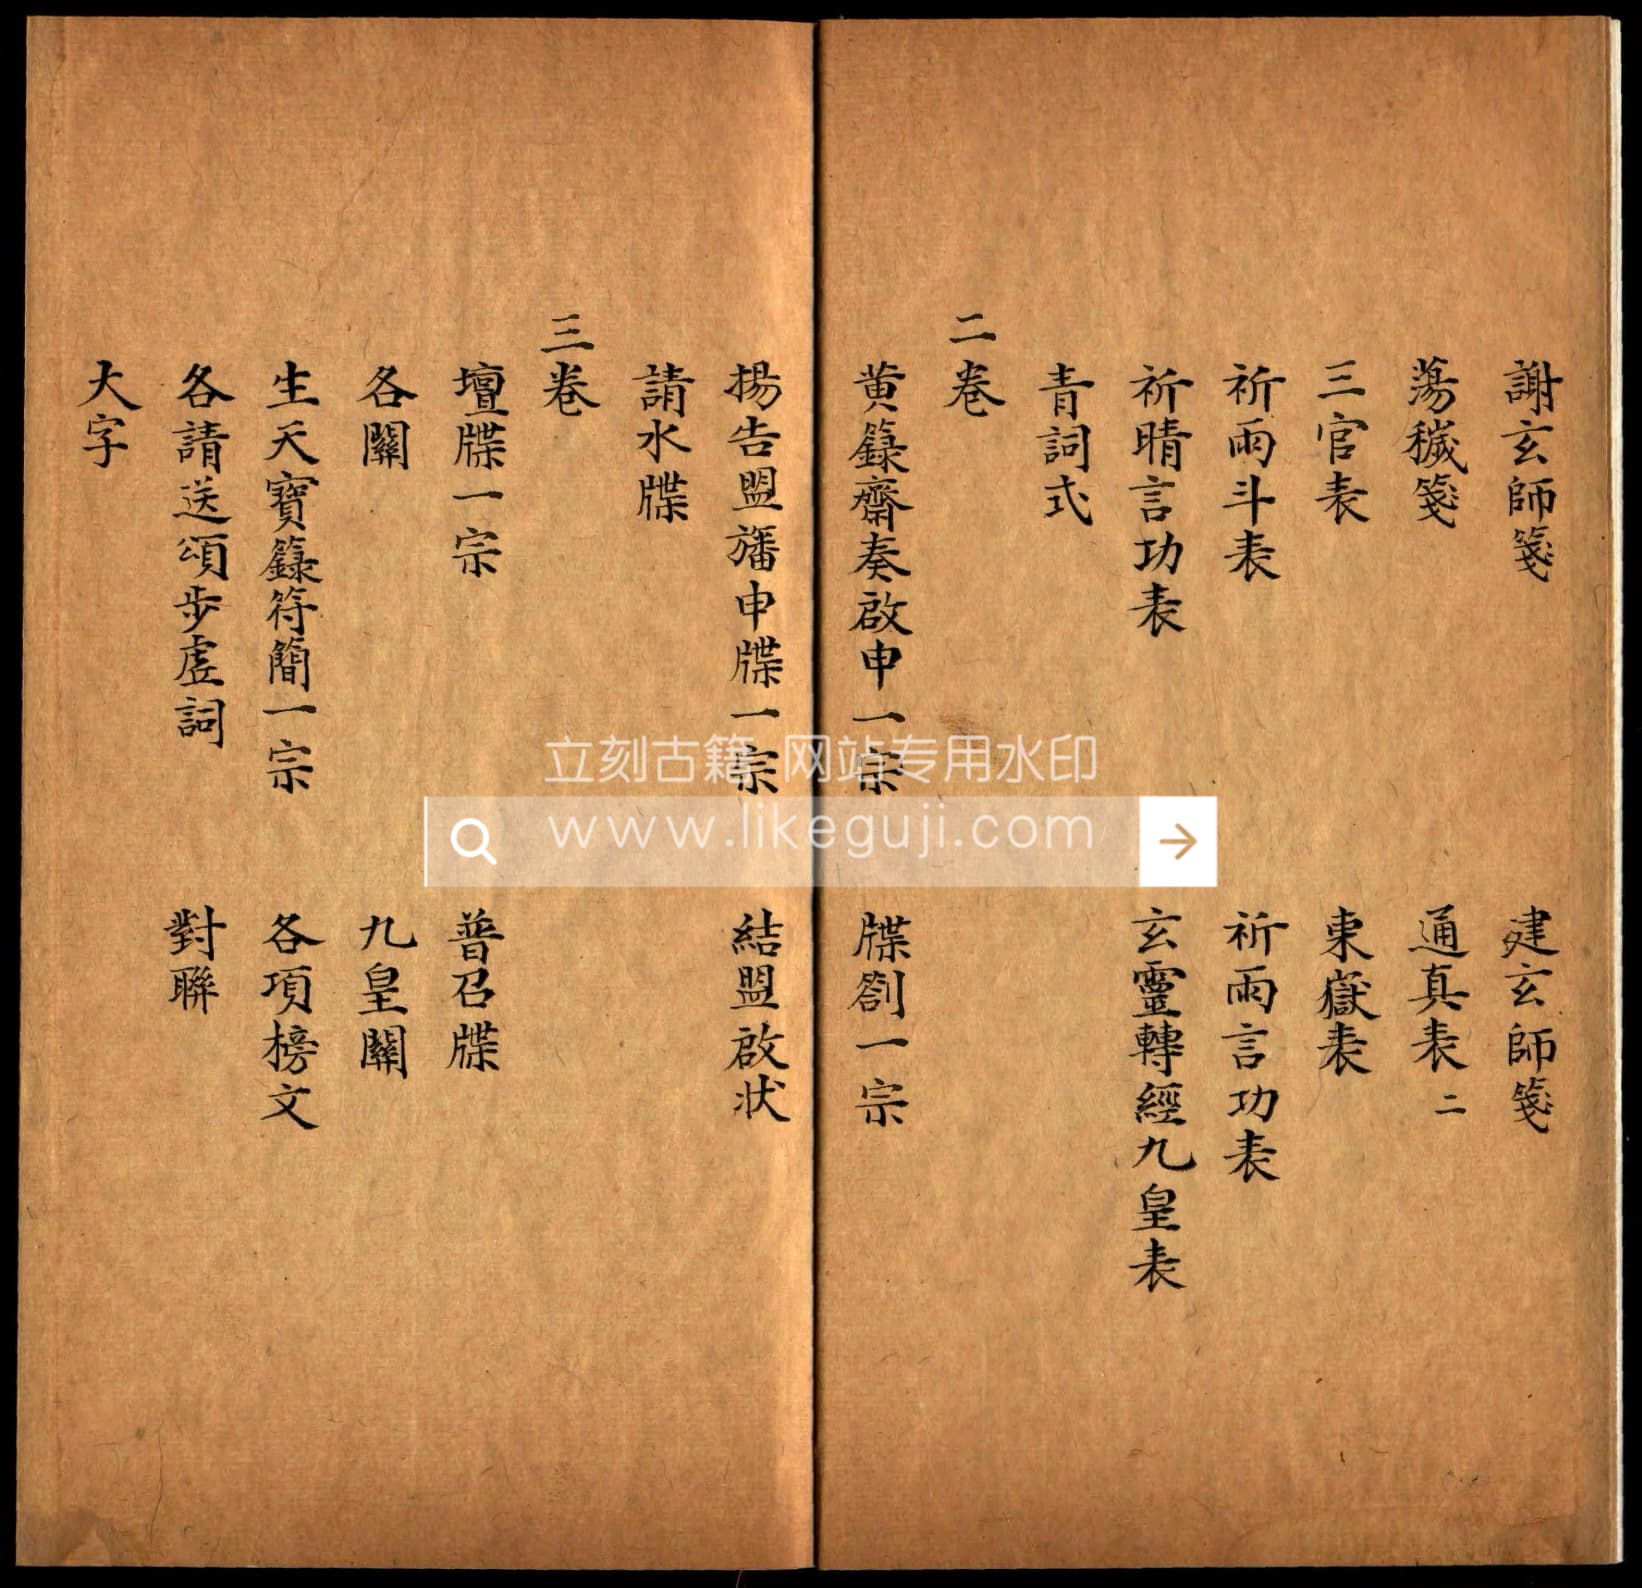 謝玄師箋　建玄師箋
蕩穢箋　通真表二
三官表　東嶽表
祈雨斗表　祈雨言功表
祈晴言功表　玄靈轉經九皇表
青詞式
二卷
黄籙齋奏啟申一宗　牒劄一宗
揚告盟旛申牒一宗　結盟啟狀
請水牒
三卷
壇牒一宗　普召牒
各關　九皇關
生天寶籙符簡一宗　各項榜文
各請送頌步虛詞　對聯
大字
立刻古籍 网站专用水印
www.likeguji.com